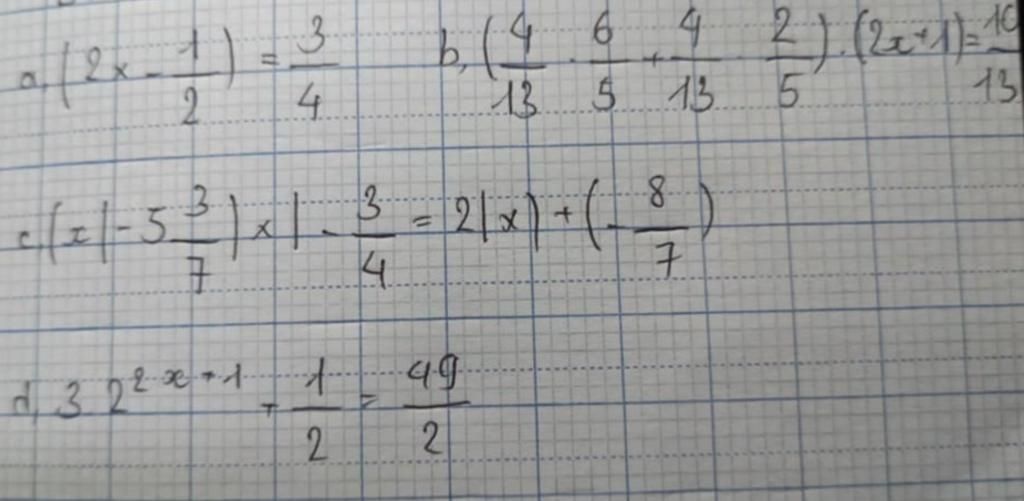 a, (2x - 1/2) = 3/4 b, (4/13 · 6/5 + 4/13 · 2/5) · (2x+1) = 10/13
c, |x| - 5 3/7 |x| - 3/4 = 2|x| + (- 8/7)
d, 3 2^2x+1 + 1/2 = 49/2